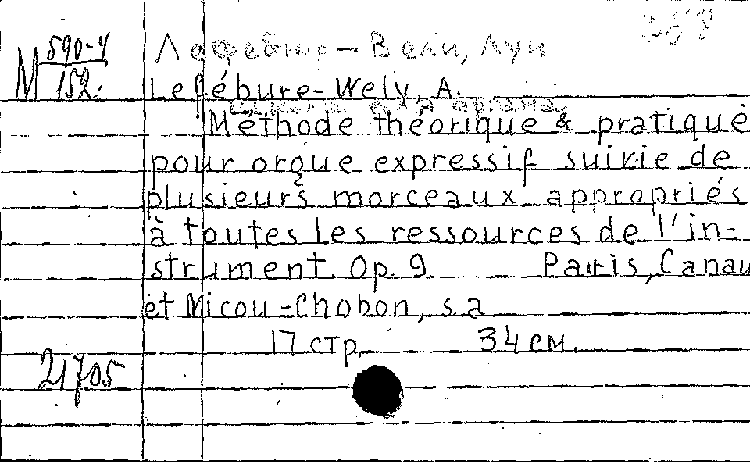 M 590-4
152.
Лефебюр-Вели, Луи
Lefébure-Wely, A.
Méthode théorique & pratique
pour orgue expressif suivie de
plusieurs morceaux appropriés
à toutes les ressources de l'in-
strument. Op. 9. Paris, Canau
et Nicou-Chobon, s.a
17 стр. 34 см.
21705